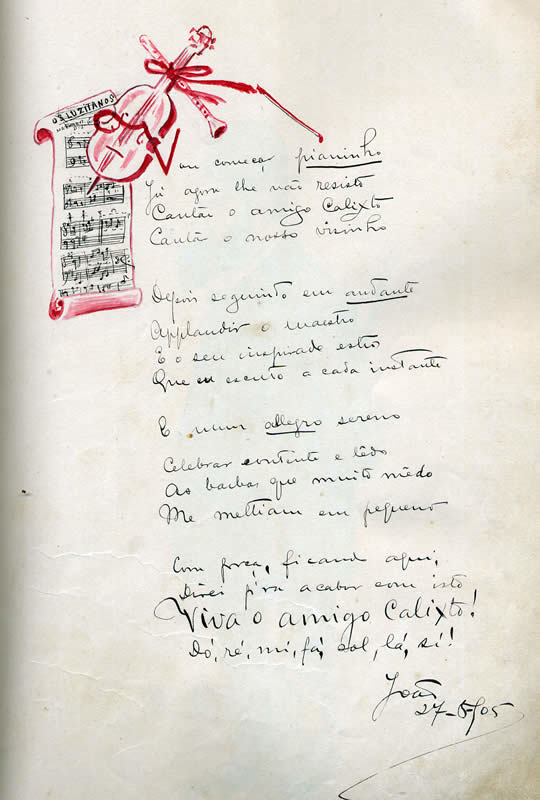 OS LUZITANOS
Vou começar pianinho
Já agora lhe não resisto
Cantar o amigo Calixto
Cantar o nosso visinho
Depois seguindo em andante
Applaudir o maestro
E o seu inspirado estro
Que eu escuto a cada instante
E num allegro sereno
Celebrar contente e lêdo
As barbas que muito mêdo
Me mettiam em pequeno
Com força, ficando aqui,
Direi p'ra acabar com isto
Viva o amigo Calixto!
Dó, ré, mi, fá, sol, lá, si!
João
27-5-905